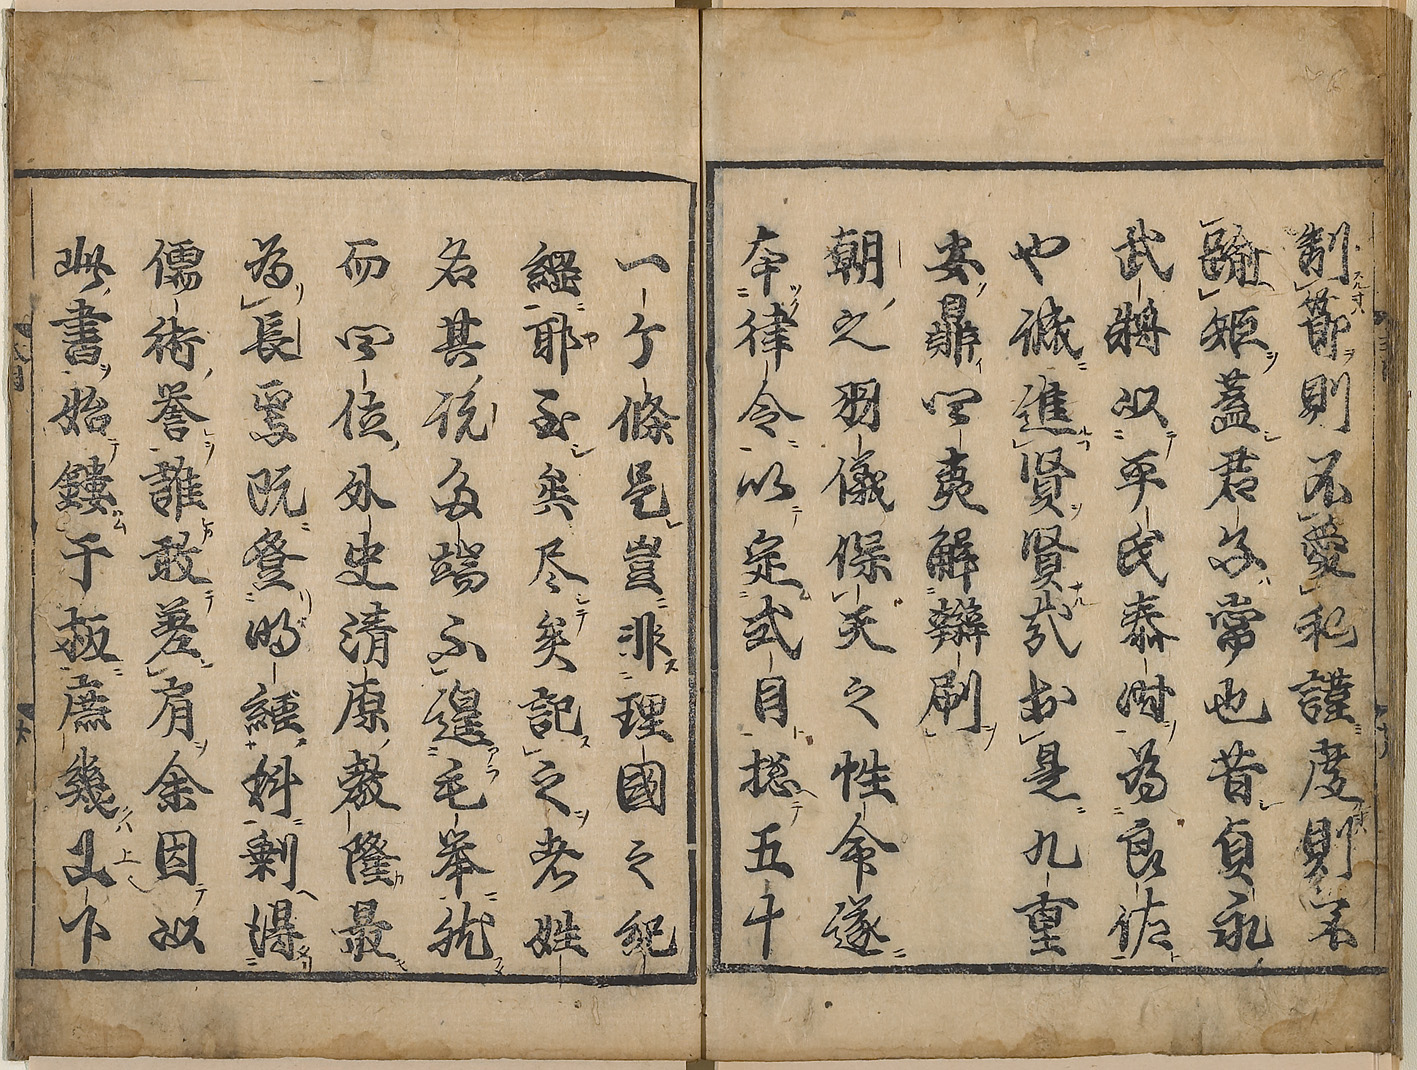 制節則不愛私謹度則不
踰矩蓋君子常也昔貞永
武將以平氏泰時為良佐
也誠進賢賢哉於是九重
安鼎四夷解辮刷
朝之羽儀保天之性命遂
本律令以定式目揔五十
一ケ條是豈非理國之紀
綱耶至矣尽矣記之者姓
名其説多端不遑毛挙然
而四位外史清原教隆最
為長焉既登明經科剰得
儒術誉誰敢差肩余因以
此書始鏤于板庶幾上下